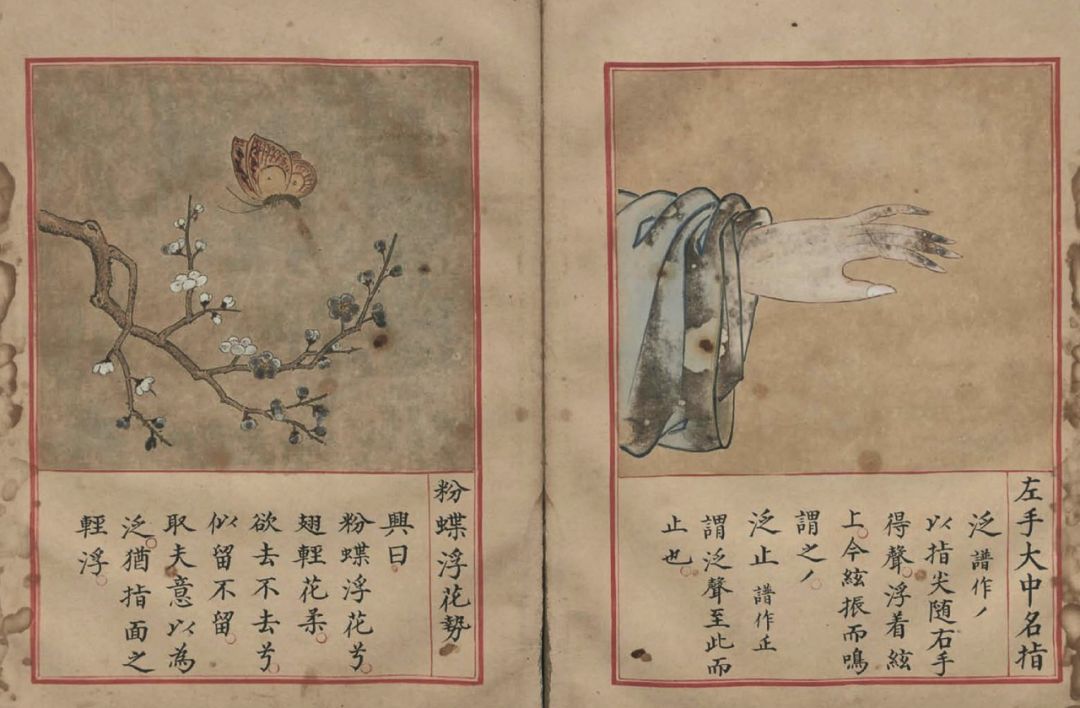 左手大中名指
泛 譜作丿
以指尖随右手
得聲。浮着絃
上。令絃振而鳴
謂之丿。
泛止 譜作正
謂泛聲至此而
止也。
粉蝶浮花勢
興曰。
粉蝶浮花兮。
翅輕花柔。
欲去不去兮。
似留不留。
取夫意以為
泛。猶指面之
輕浮。